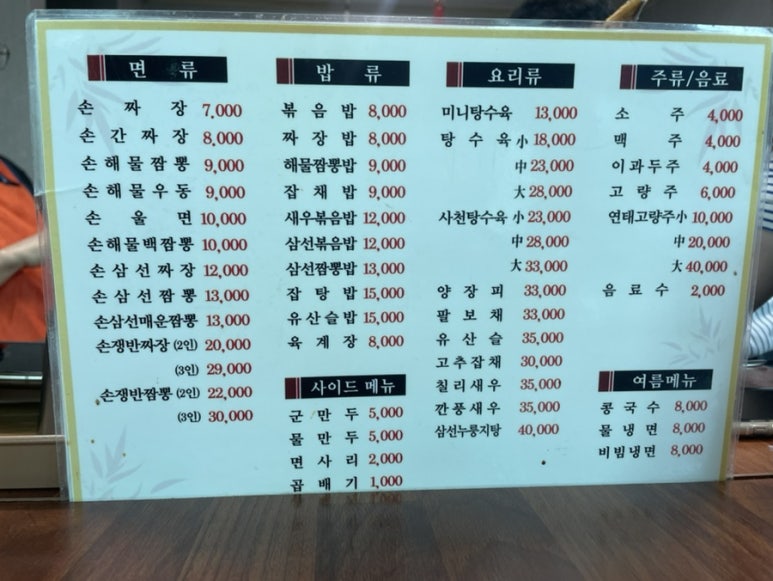 면 류
손 짜 장 7,000
손 간 짜 장 8,000
손 해 물 짬 뽕 9,000
손 해 물 우 동 9,000
손 울 면 10,000
손 해 물 백 짬 뽕 10,000
손 삼 선 짜 장 12,000
손 삼 선 짬 뽕 13,000
손삼선매운짬뽕 13,000
손쟁반짜장 (2인) 20,000
(3인) 29,000
손쟁반짬뽕 (2인) 22,000
(3인) 30,000
밥 류
볶 음 밥 8,000
짜 장 밥 8,000
해물짬뽕밥 9,000
잡 채 밥 9,000
새우볶음밥 12,000
삼선볶음밥 12,000
삼선짬뽕밥 13,000
잡 탕 밥 15,000
유산슬밥 15,000
육 계 장 8,000
사이드 메뉴
군 만 두 5,000
물 만 두 5,000
면 사 리 2,000
곱 배 기 1,000
요리류
미니탕수육 13,000
탕 수 육 小 18,000
中 23,000
大 28,000
사천탕수육 小 23,000
中 28,000
大 33,000
양 장 피 33,000
팔 보 채 33,000
유 산 슬 35,000
고추잡채 30,000
칠리새우 35,000
깐풍새우 35,000
삼선누룽지탕 40,000
주류/음료
소 주 4,000
맥 주 4,000
이과두주 4,000
고 량 주 6,000
연태고량주 小 10,000
中 20,000
大 40,000
음 료 수 2,000
여름메뉴
콩 국 수 8,000
물 냉 면 8,000
비빔냉면 8,000